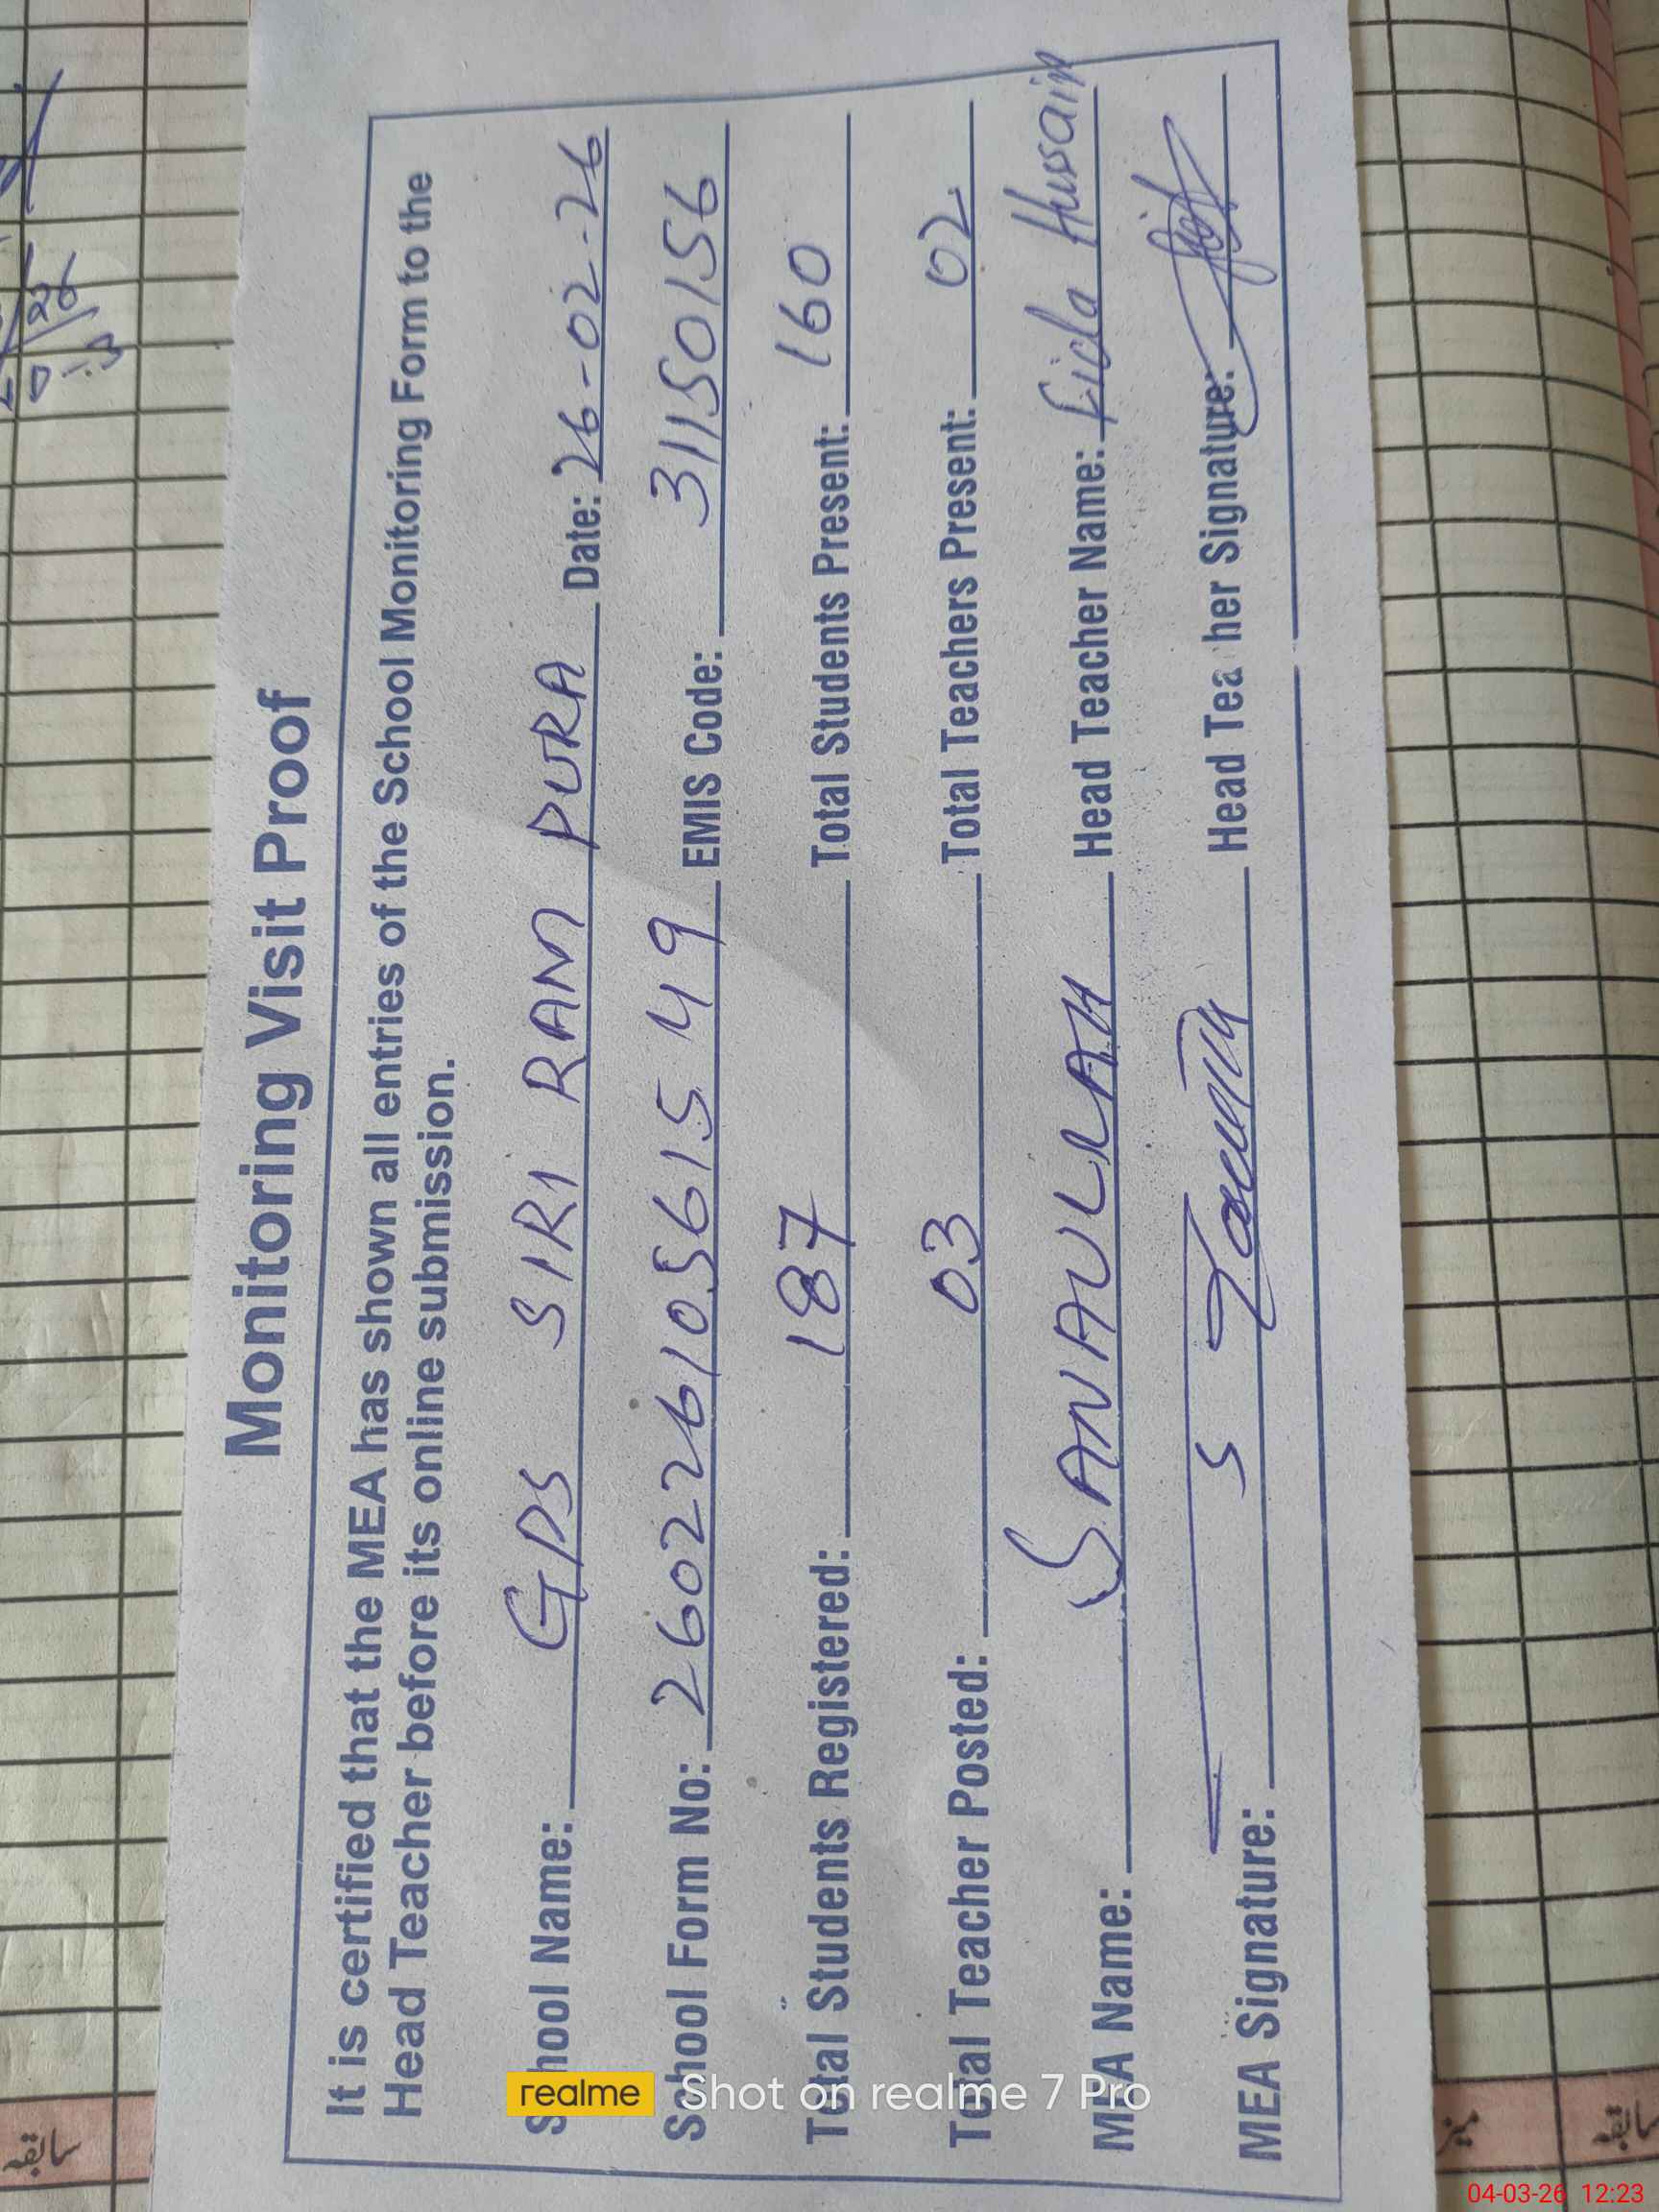 Monitoring Visit Proof
It is certified that the MEA has shown all entries of the School Monitoring Form to the
Head Teacher before its online submission.
School Name: GPS SIRI RAM PURA Date: 26-02-26
School Form No: 26022610561549 EMIS Code: 31150156
Total Students Registered: 187 Total Students Present: 160
Total Teacher Posted: 03 Total Teachers Present: 02
MEA Name: SANAULLAH Head Teacher Name: Fida Hussain
MEA Signature: Head Teacher Signature:
realme Shot on realme 7 Pro
04-03-26 12:23
سابقہ
میز
سابقہ